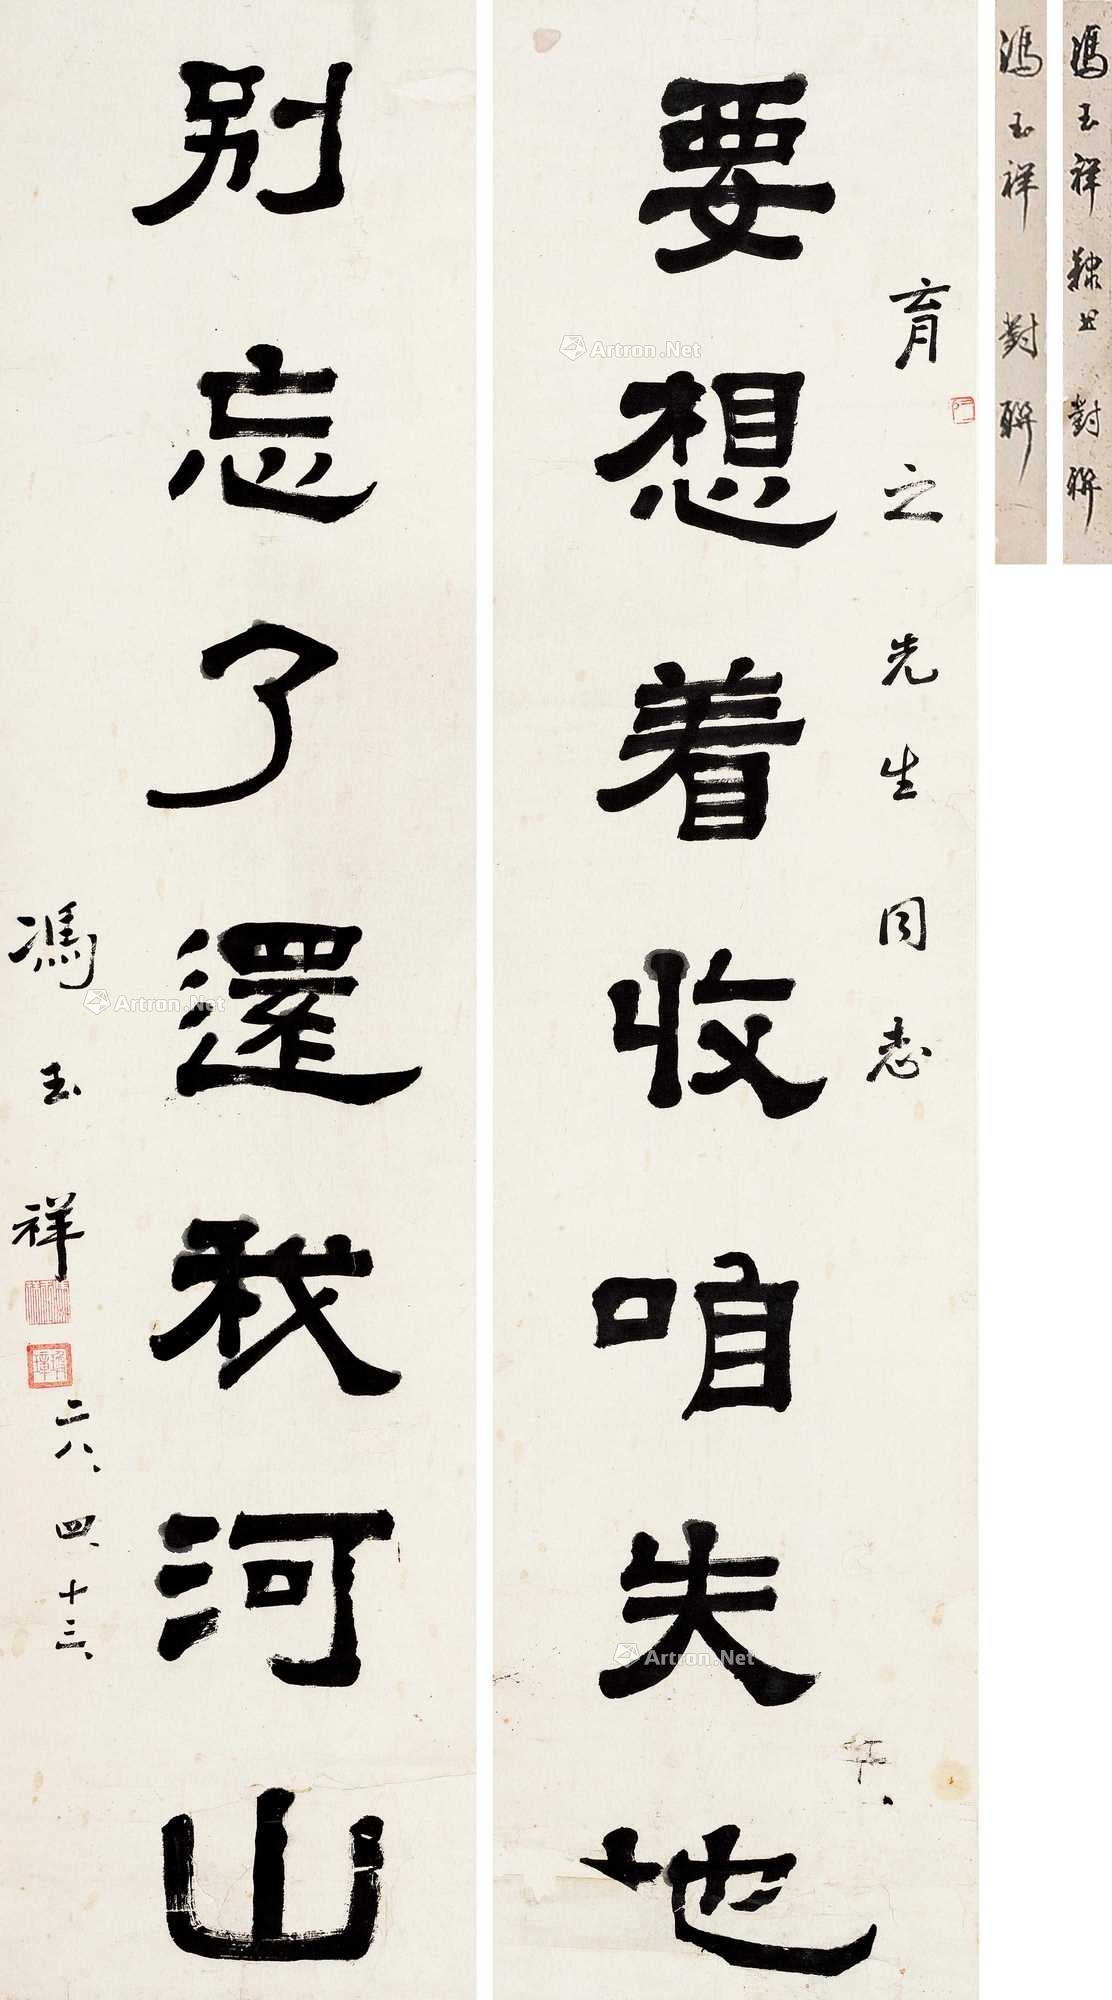 馮玉祥隸書對聯
馮玉祥對聯
育之先生同志
要想着收咱失地
别忘了還我河山
馮玉祥
二八、四、十三、
Artron.Net
Artron.Net
Artron.Net